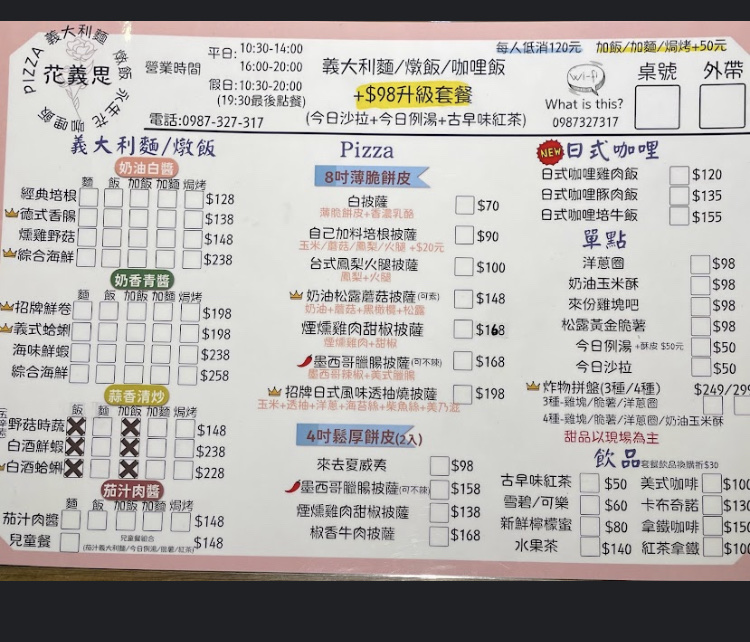 PIZZA 義大利麵 燉飯 永生花 咖哩飯
花義思
營業時間
平日: 10:30-14:00
16:00-20:00
假日:10:30-20:00
(19:30最後點餐)
電話:0987-327-317
義大利麵/燉飯/咖哩飯
+$98升級套餐
(今日沙拉+今日例湯+古早味紅茶)
每人低消120元 加飯/加麵/焗烤+50元
wi-fi
What is this?
0987327317
桌號 外帶
義大利麵/燉飯
奶油白醬
麵 飯 加飯 加麵 焗烤
經典培根 $128
德式香腸 $138
燻雞野菇 $148
綜合海鮮 $238
奶香青醬
麵 飯 加飯 加麵 焗烤
招牌鮮卷 $198
義式蛤蜊 $198
海味鮮蝦 $238
綜合海鮮 $258
蒜香清炒
飯 麵 加飯 加麵 焗烤
野菇時蔬 $148
白酒鮮蝦 $238
白酒蛤蜊 $228
茄汁肉醬
麵 飯 加飯 加麵 焗烤
茄汁肉醬 $148
兒童餐 $148
兒童餐組合
Pizza
8吋薄脆餅皮
白披薩 $70
薄脆餅皮+香濃乳酪
自己加料培根披薩 $90
玉米/蘑菇/鳳梨/火腿 +$20元
台式鳳梨火腿披薩 $100
鳳梨+火腿
奶油松露蘑菇披薩(可素) $148
奶油+蘑菇+黑橄欖+松露
煙燻雞肉甜椒披薩 $168
煙燻雞肉+甜椒
墨西哥臘腸披薩(可不辣) $168
墨西哥辣椒+美式臘腸
招牌日式風味透抽燒披薩 $198
玉米+透抽+洋蔥+海苔絲+柴魚絲+美乃滋
4吋鬆厚餅皮(2入)
來去夏威夷 $98
墨西哥臘腸披薩(可不辣) $158
煙燻雞肉甜椒披薩 $138
椒香牛肉披薩 $168
NEW 日式咖哩
日式咖哩雞肉飯 $120
日式咖哩豚肉飯 $135
日式咖哩培牛飯 $155
單點
洋蔥圈 $98
奶油玉米酥 $98
來份雞塊吧 $98
松露黃金脆薯 $98
今日例湯 +酥皮 $50元 $50
今日沙拉 $50
炸物拼盤(3種/4種) $249/299
3種-雞塊/脆薯/洋蔥圈
4種-雞塊/脆薯/洋蔥圈/奶油玉米酥
甜品以現場為主
飲品 套餐飲品換購折$30
古早味紅茶 $50 美式咖啡 $100
雪碧/可樂 $60 卡布奇諾 $130
新鮮檸檬蜜 $80 拿鐵咖啡 $150
水果茶 $140 紅茶拿鐵 $100